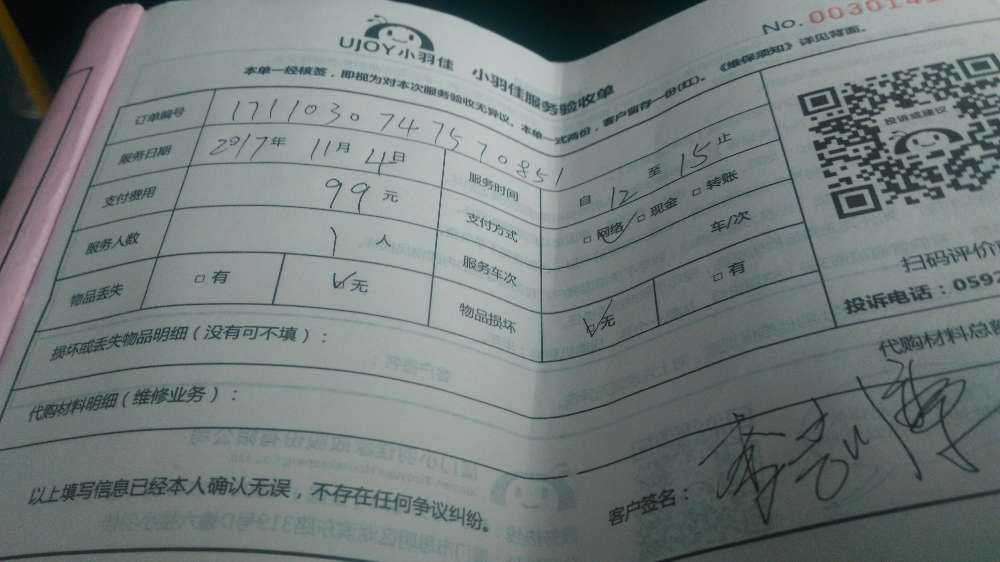 UJOY小羽佳 小羽佳服务验收单
No. 003014
本单一经核签，即视为对本次服务验收无异议。本单一式两份，客户留存一份(红)。《维保须知》详见背面。
订单编号 1711030747570851
服务日期 2017年 11月 4日 服务时间 自 12 至 15 止
支付费用 99 元 支付方式 □网络 □现金 □转账
服务人数 1 人 服务车次 车/次
物品丢失 □有 □无 物品损坏 □无 □有
投诉或建议
扫码评价
投诉电话：059
损坏或丢失物品明细（没有可不填）：
代购材料明细（维修业务）：
代购材料总
以上填写信息已经本人确认无误，不存在任何争议纠纷。
客户签名：